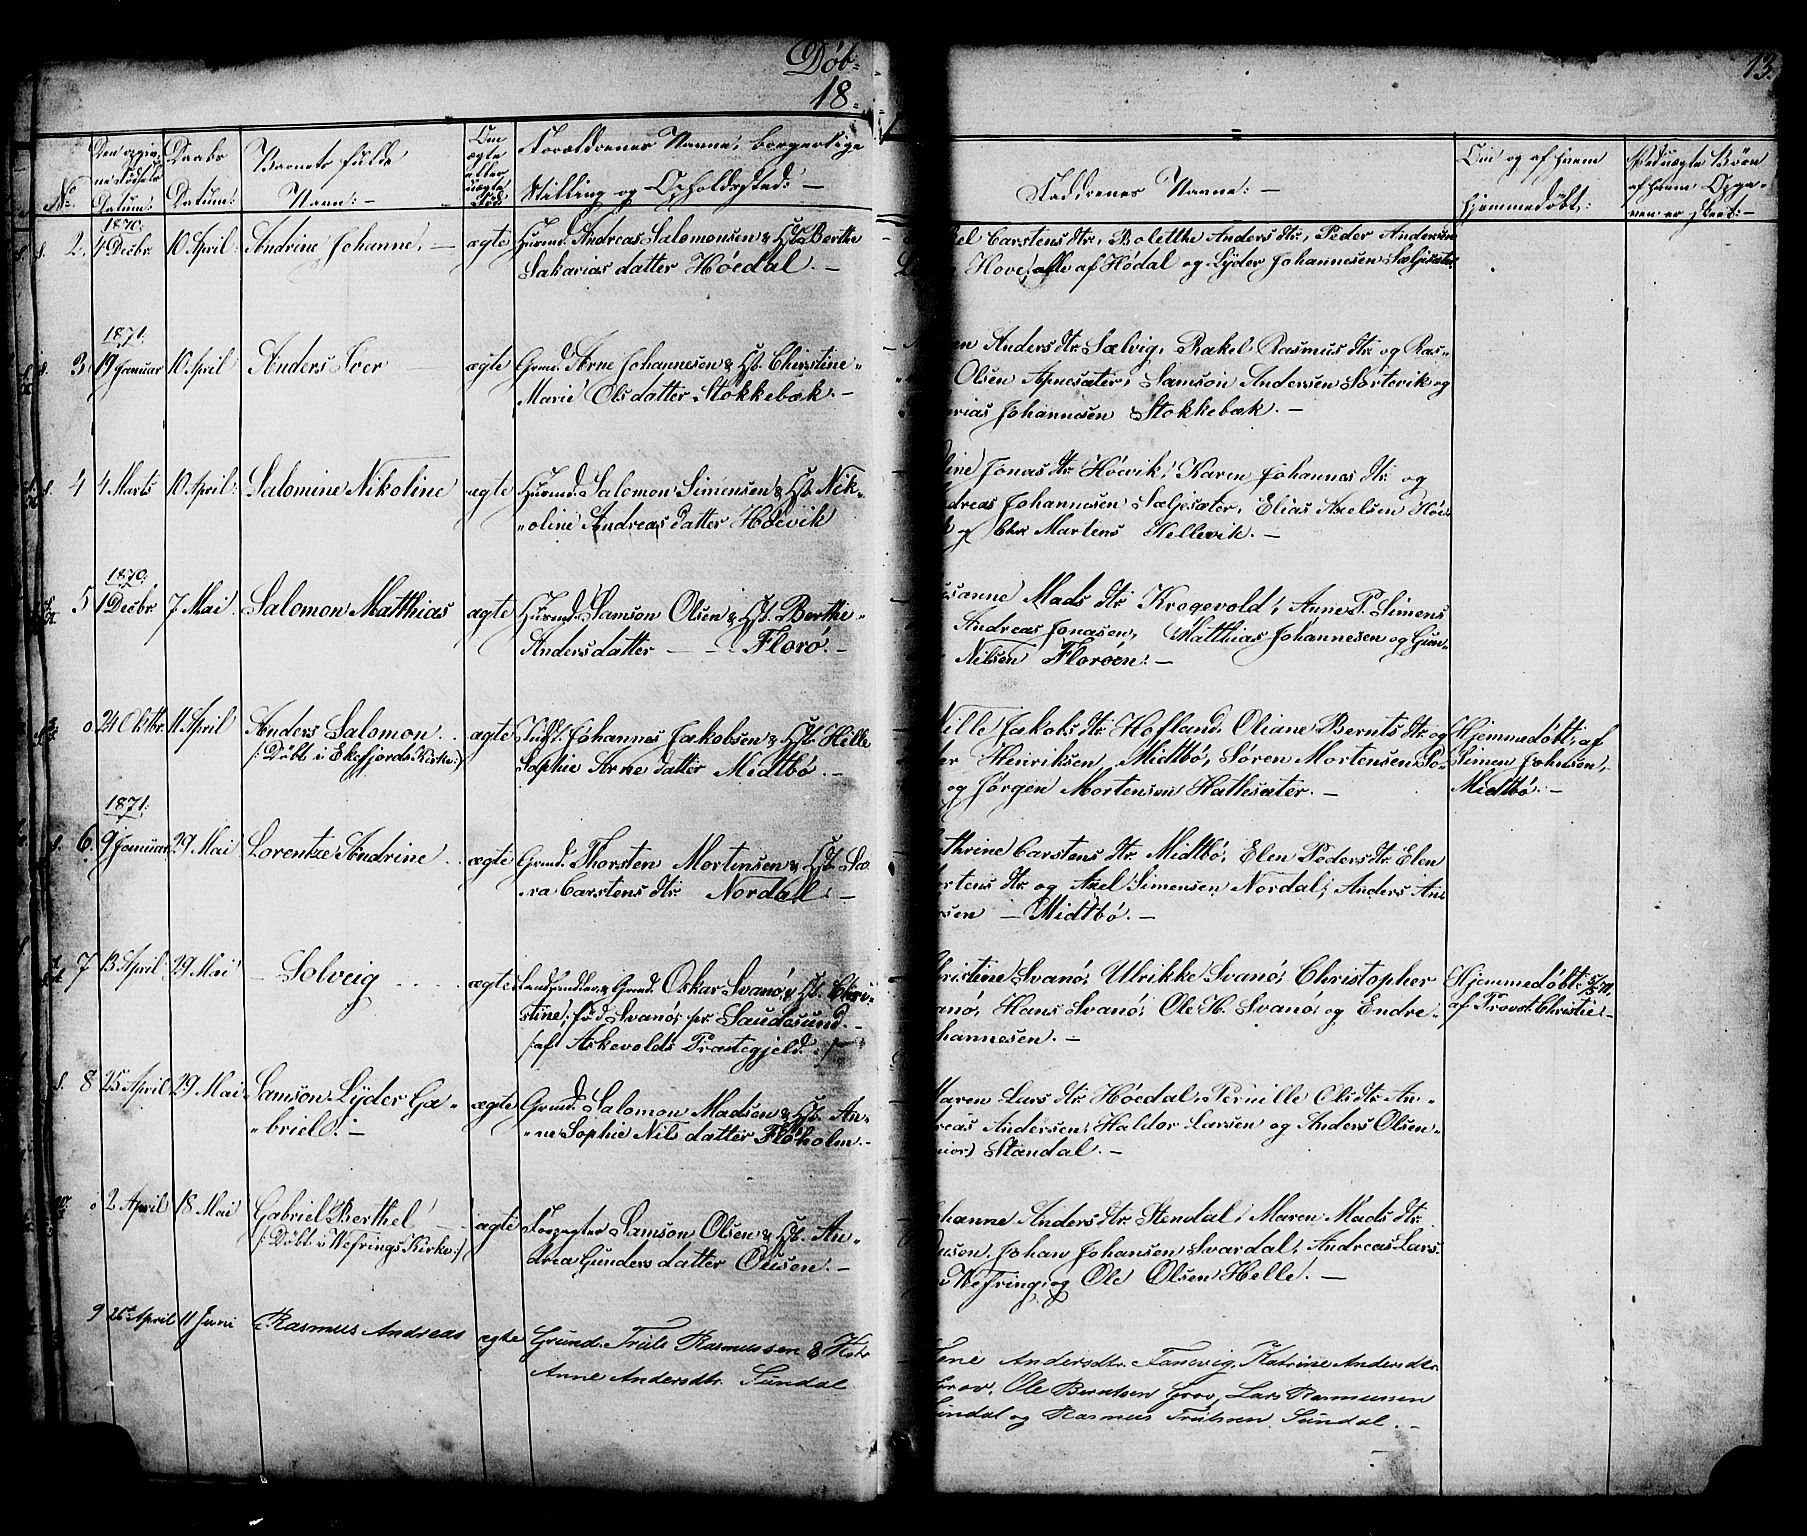 Døb-
18-
13.
No.
Den opgiv-
ne Fødsels
Datum:
Daabs
Datum:
Barnets fulde
Navn: -
Om
ægte
eller
uægte
Forældrenes Navne, borgerlige
Stilling og Opholdssted: -
Faddrenes Navne: -
Om og af hvem
hjemmedøbt:
1870:
2. 4 Decbr 10 April Andrine Johanne. - ægte Huusmd. Andreas Salomonsen & Hst. Berthe
Sakarias datter Høedal. -
Carstens dtr., Bolethe Anders dtr, Peder Andersen
Hove, alle af Hødal og Lyder Johannesen Sælgesæter.
1871.
3 19 Januar 10 April Anders Iver - ægte Grmd. Arne Johannesen & Hst. Christine
Marie Olsdatter Stokkebæk. -
Anders dtr. Sælvig, Rakel Rasmus dtr. og Ras-
Olsen Apnesæter, Samson Andersen Sørtevik og
Johannesen Stokkebæk. -
4 4 Marts 10 April Salomine Nikoline ægte Huusmd. Salomon Simensen & Hst. Nik-
oline Andreas datter Høevik
Jonas dtr. Høevik, Karen Johannes dtr. og
Johannesen Sælgesæter, Elias Axelsen Høe-
og Chr. Martens Hellevik. -
1870:
5 1 Decbr 7 Mai Salomon Matthias ægte Huusmd. Samson Olsen & Hst. Berthe
Andersdatter - - Florø. -
Mads dtr. Krogevold, Anne P. Simens
Andreas Jonasen, Matthias Johannesen og Gun-
Nilsen Florøen. -
0 24 Oktbr. 11 April Anders Salomon
/: Døbt i Eikefjords Kirke :/
ægte Johannes Jakobsen & Hst. Hille
Sophie Arne datter Midtbø. -
Jakobs dtr. Hofland, Oliane Bernts dtr. og
Henriksen Midtbø, Søren Mortensen
og Jørgen Mortensen Hatlesæter. -
Hjemmedøbt, af
Simen Johnsen,
Midtbø: -
1871:
6. 9 Januar 29 Mai Lorentze Andrine ægte Grmd. Thorsten Mortensen & Hst. Sa-
ra Carstens dtr. Nordal. -
Carstens dtr. Midtbø, Elen Peders dtr. Elen
dtr. og Axel Simensen Nordal, Anders An-
- Midtbø. -
7 13 April 29 Mai - Solveig ægte Landhandler & Grmd. Oskar Svanø, & Hst. Chri-
stine, fød Svanø, pr. Saudesund. -
/: af Askevolds Præstegjeld. :/
Svanø, Ulrikke Svanø, Christopher
Hans Svanø, Ole H. Svanø og Endre
Hjemmedøbt
af Provst Christie. -
8 25 April 29 Mai Samson Lyder Ga-
briel. -
ægte Grmd. Salomon Madsen & Hst. An-
ne Sophie Nils datter Floholm. -
Maren Lars dtr. Høedal, Pernille Olsdtr. An-
Andersen, Haldor Larsen og Anders Olsen
Standal. -
0 2 April 18 Mai Gabriel Berthel -
/: Døbt i Vefrings Kirke :/
ægte Forpagter Samson Olsen & Hst. An-
drea Gunders datter Ousen. -
Anders dtr. Stendal, Maren Mads dtr.
Johan Johansen Svardal, Andreas Lars-
Vefring, og Ole Olsen Helle. -
9 25 April 11 Juni Rasmus Andreas ægte Grund. Truls Rasmussen & Hst.
Anne Andersdtr. Sundal
Andersdtr. Tanevig, Katrine Andersdtr.
Grov, Ole Berntsen Grov, Lars Rasmussen
Sundal og Rasmus Trulsen Sundal. -